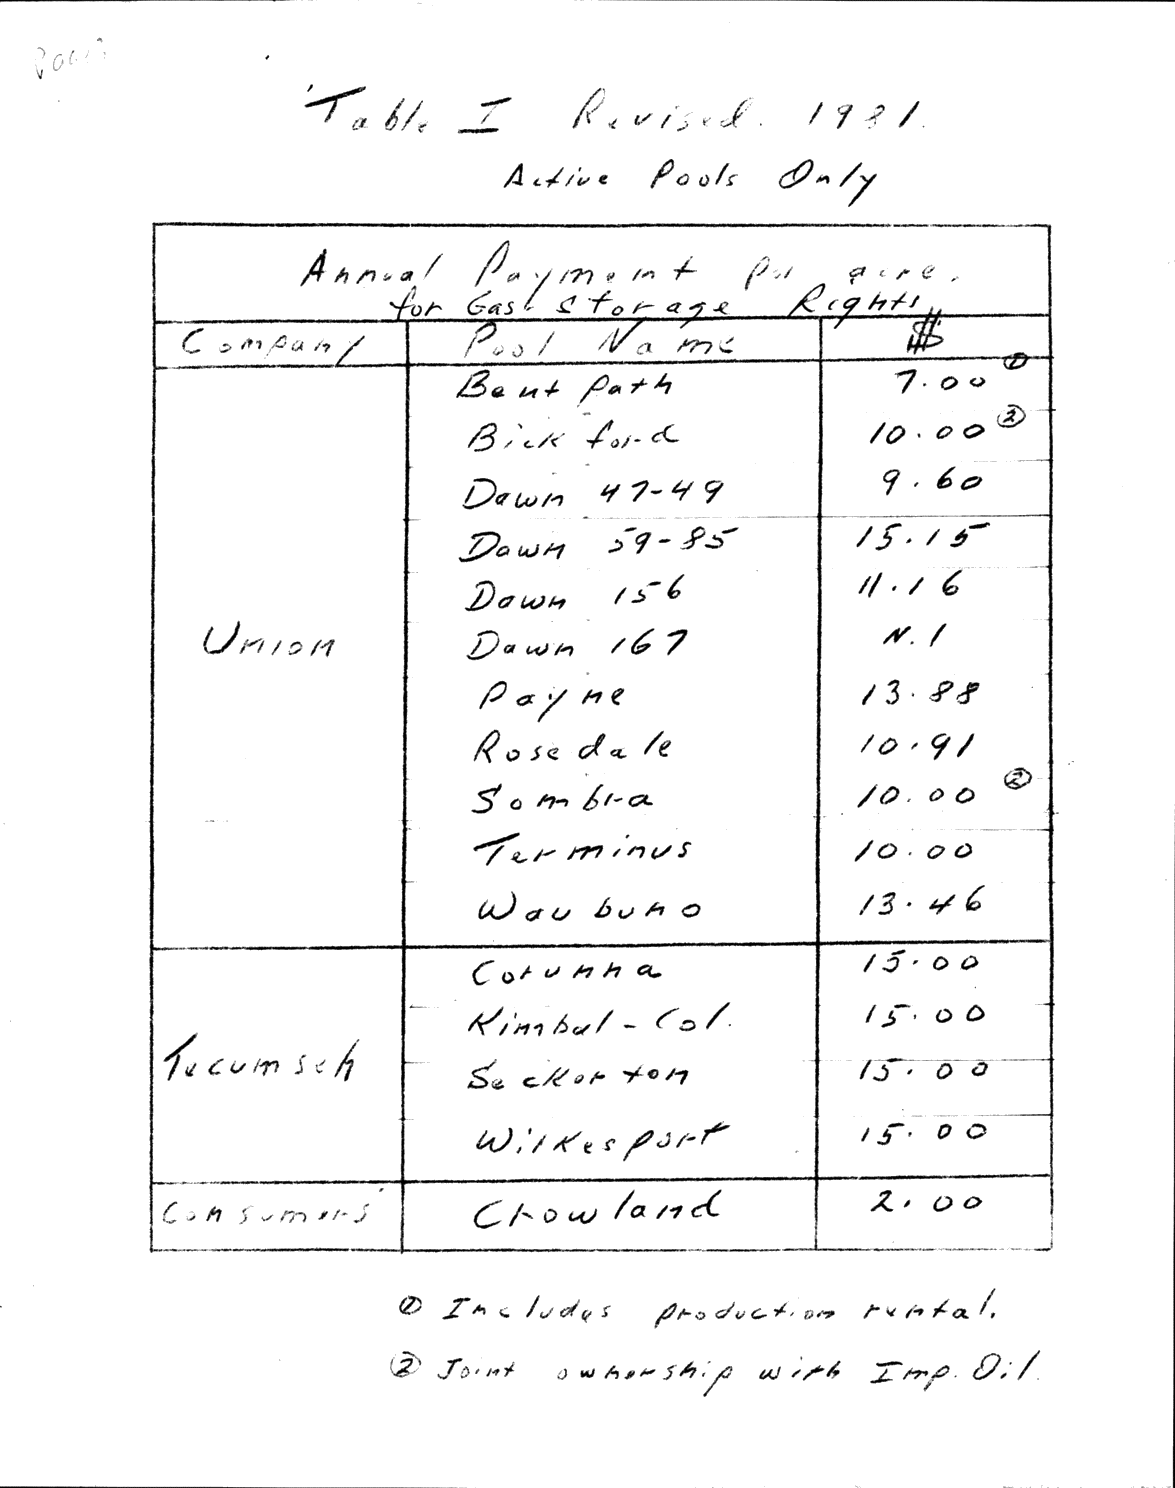 Table I Revised. 1981.
Active Pools Only
Annual Payment per acre.
for Gas Storage Rights
Company Pool Name $
Bentpath 7.00 ①
Bickford 10.00 ②
Dawn 47-49 9.60
Dawn 59-85 15.15
Dawn 156 11.16
Union Dawn 167 N.1
Payne 13.88
Rosedale 10.91
Sombra 10.00 ②
Terminus 10.00
Waubuno 13.46
Corunna 15.00
Kimbal-Col. 15.00
Tecumseh Seckerton 15.00
Wilkesport 15.00
Consumers' Crowland 2.00
① Includes production rental.
② Joint ownership with Imp. Oil.